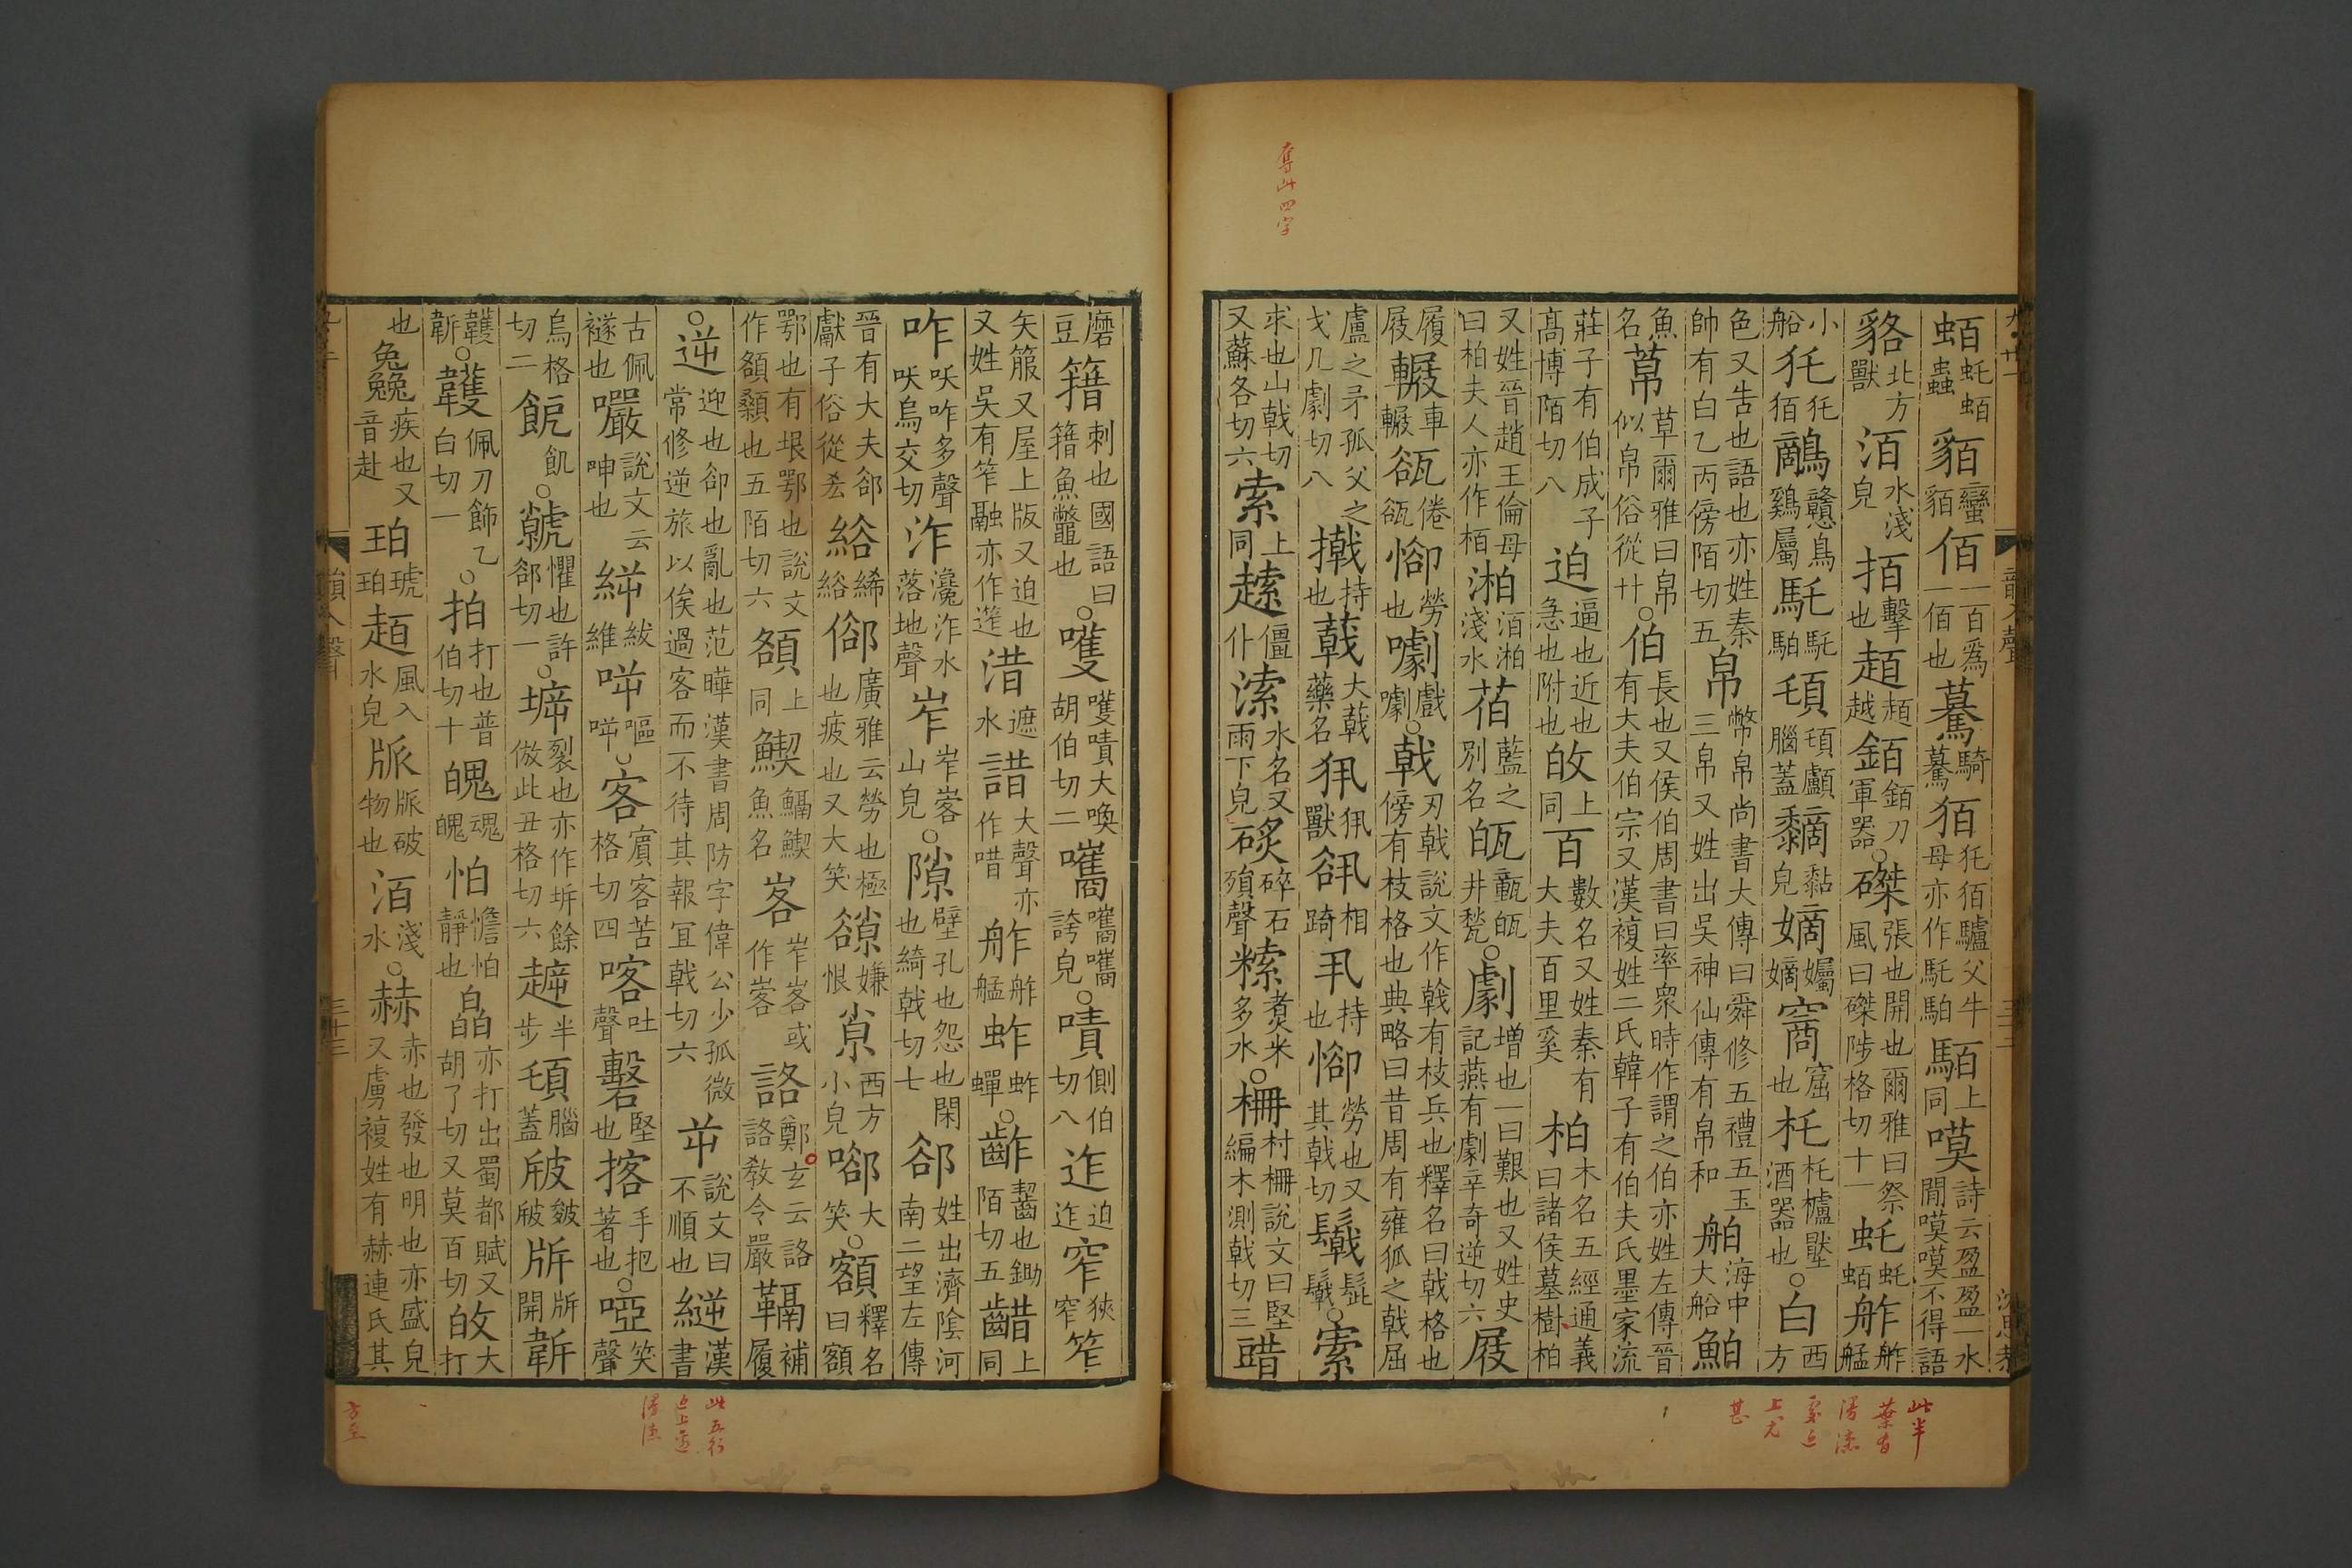 蛨虴蛨蟲貊蠻貊佰一百爲一佰也驀騎驀㹮㹿㹮驢父牛母亦作馲䮂䮂上同嗼詩云盈盈一水間嗼嗼不得語
貉北方獸洦水淺皃㧳擊也趏趏越銆銆刀軍器○磔張也開也爾雅曰祭風曰磔陟格切十一虴虴蛨舴舴艋
小船㹿㹿㹮鸍戇鳥鷄屬馲馲䮂頙頙顱腦蓋䵂黏皃嫡孎嫡窩窟也杔杔櫨䵳酒器也○白西方
色又告也語也亦姓秦帥有白乙丙傍陌切五帛幣帛尚書大傳曰舜修五禮五玉三帛又姓出吳神仙傳有帛和舶海中大船鮊
魚名䓛草爾雅曰帛似帛俗從廿○伯長也又侯伯周書曰率衆時作謂之伯亦姓左傳晉有大夫伯宗又漢複姓二氏韓子有伯夫氏墨家流
莊子有伯成子高博陌切八迫逼也近也急也附也敀上同百數名又姓秦有大夫百里奚柏木名五經通義曰諸侯墓樹柏
又姓晉趙王倫母曰柏夫人亦作栢湘洦湘淺水萂藍之別名瓸甎瓸井甃○劇增也一曰艱也又姓史記燕有劇辛奇逆切六屐
履屐䡖車䡖㕁倦㕁㦸勞也㘌戲㘌○戟刃戟說文作㦸有枝兵也釋名曰戟格也傍有枝格也典略曰昔周有雍狐之戟屈
盧之矛孤父之戈几劇切八撠持也蕺大蕺藥名犱犱獸谻相踦丮持也㦸勞也又其戟切䰙髭䰙○索
求也山戟切又蘇各切六索上同䞽僵仆溹水名又雨下皃硳碎石殞聲䊞煑米多水○柵村柵說文曰堅編木測戟切三䜺
磨豆籍刺也國語曰籍魚鼈也○嚄嚄嘖大喚胡伯切二嚿嚿嚿誇皃○嘖側伯切八迮迫迮窄狹窄笮
矢箙又屋上版又迫也又姓吳有笮融亦作筰浩遮水諎大聲亦作唶舴舴艋蚱蚱蟬○齚齧也鋤陌切五齰上同
咋咲咋多聲咲烏交切泎瀺泎水落地聲岝岝峉山皃○隙壁孔也怨也閑也綺戟切七郤姓出濟陰河南二望左傳
晉有大夫郤獻子俗從㕁綌絺綌㕁廣雅云勞也極也疲也又大笑𧮬嫌恨㡭西方小皃㗘大笑○額釋名曰額
鄂也有垠鄂也說文作頟顙也五陌切六頟上同鰐鰏鰐魚名峉岝峉或作峉詻鄭玄云詻詻敎令嚴䩹補履
○逆迎也卻也亂也范曄漢書周防字偉公少孤微常修逆旅以俟過客而不待其報宜戟切六屰說文曰不順也縌漢書
古佩襚也嚴說文云呻也絆紱維㖾嘔㖾○客賓客苦格切四喀吐聲礊堅也揢手把著也○啞笑聲
烏格切二餩飢○虩懼也許郤切一○㙤裂也亦作坼餘倣此丑格切六䟾半步頙腦蓋𤿎皴𤿎㸷㸷開䪞
韄䪞○韄佩刀飾乙白切一○拍打也普伯切十魄魂魄怕憺怕靜也皛亦打出蜀都賦又胡了切又莫百切敀大打
也㕙疾也又音赴珀琥珀䞟風入水皃𣲖脈破物也洦淺水○赫赤也發也明也亦盛皃又虜複姓有赫連氏其
奪此四字
此半葉有漫漶
此五行
三十三